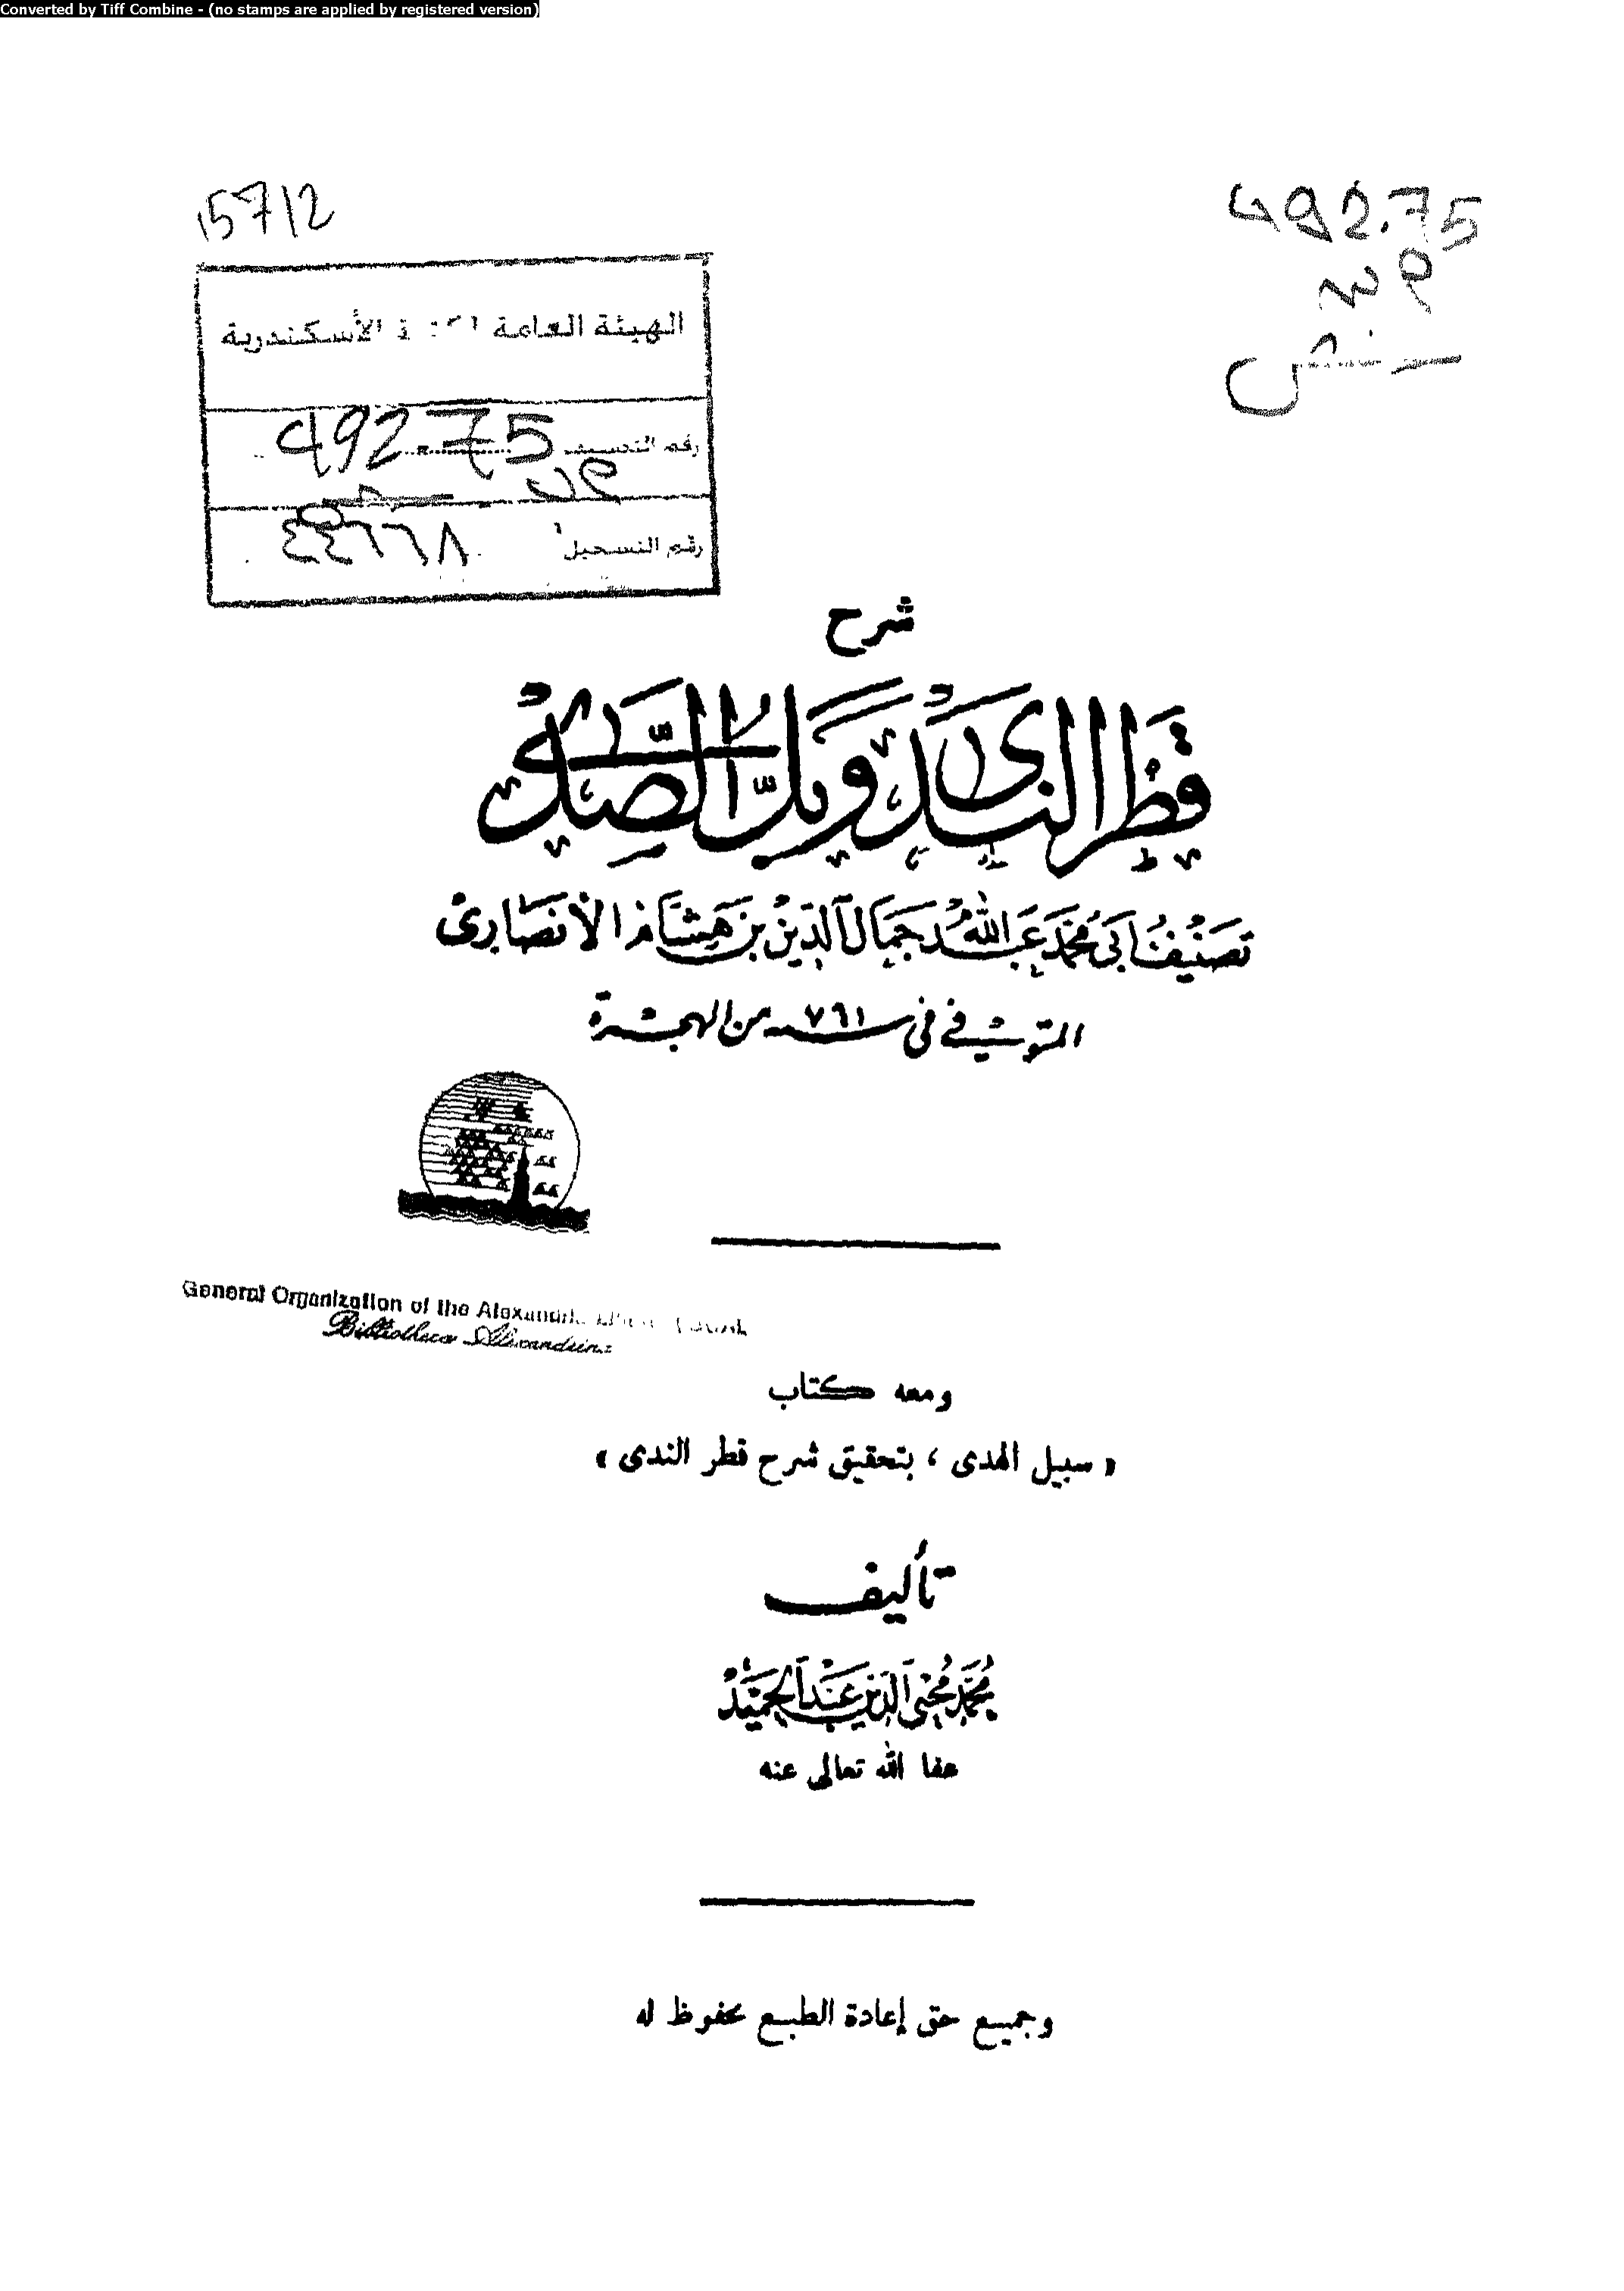 Converted by Tiff Combine - (no stamps are applied by registered version)
15712
492.75
الهيئة العامة الأسكندرية
492.75
رقم التسجيل ٤٤٦٦٨
شرح
قَطْرُ النَّدَى وَبَلُّ الصَّدَى
تصنيف أبى محمد عبد الله جمال الدين بن هشام الأنصارى
المتوفى فى سنة ٧٦١ من الهجرة
General Organization of the
Bibliotheca Alexandrina
ومعه كتاب
« سبيل الهدى ، بتحقيق شرح قطر الندى »
تأليف
محمد محيى الدين عبد الحميد
عفا الله تعالى عنه
وجميع حق إعادة الطبع محفوظ له